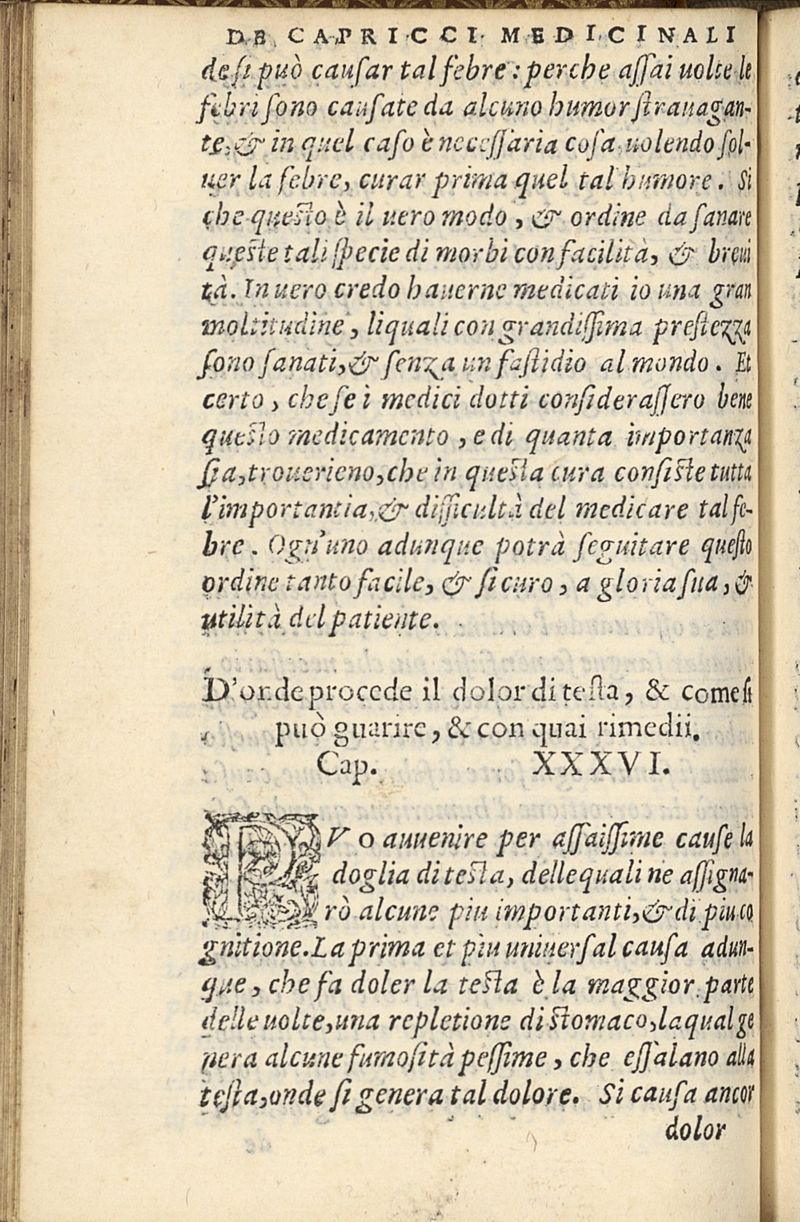 DE CAPRICCI MEDICINALI
de si può causar tal febre: perche assai uolte le
febri sono causate da alcuno humor strauagan-
te, & in quel caso è necessaria cosa uolendo sol-
uer la febre, curar prima quel tal humore. Si
che questo è il uero modo, & ordine da sanare
queste tali specie di morbi con facilità, & breui
tà. In uero credo hauerne medicati io una gran
moltitudine, liquali con grandissima prestezza
sono sanati, & senza un fastidio al mondo. Et
certo, che se i medici dotti considerassero bene
questo medicamento, e di quanta importanza
sia, trouerieno, che in questa cura consiste tutta
l'importantia, & difficultà del medicare tal fe-
bre. Ogn'uno adunque potrà seguitare questo
ordine tanto facile, & sicuro, a gloria sua, &
utilità del patiente.
D'onde procede il dolor di testa, & come si
può guarire, & con quai rimedii.
Cap. XXXVI.
PVo auuenire per assaissime cause la
doglia di testa, delle quali ne assigna-
rò alcune piu importanti, & di piu co
gnitione. La prima et piu uniuersal causa adun-
que, che fa doler la testa è la maggior parte
delle uolte, una repletione di stomaco, laqual ge
nera alcune fumosità pessime, che essalano alla
testa, onde si genera tal dolore. Si causa ancor
dolor